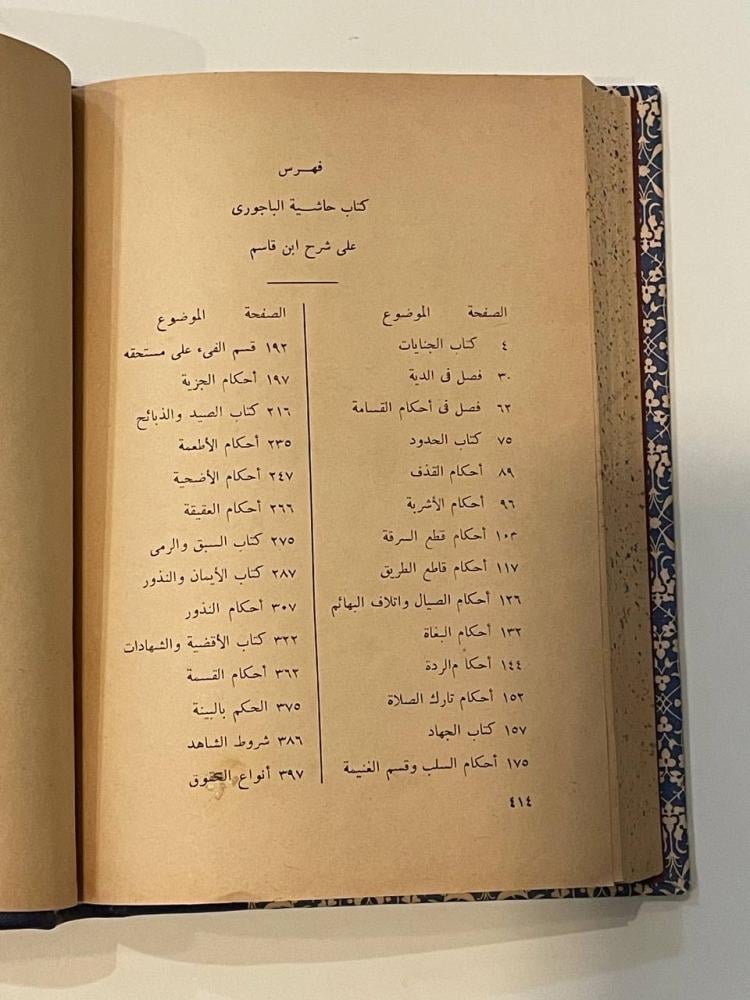 فهرس
كتاب حاشية الباجورى
على شرح ابن قاسم
الصفحة الموضوع
٤ كتاب الجنايات
٣٠ فصل فى الدية
٦٢ فصل فى أحكام القسامة
٧٥ كتاب الحدود
٨٩ أحكام القذف
٩٦ أحكام الأشربة
١٠٣ أحكام قطع السرقة
١١٧ أحكام قاطع الطريق
١٢٦ أحكام الصيال واتلاف البهائم
١٣٢ أحكام البغاة
١٤٤ أحكا م الردة
١٥٢ أحكام تارك الصلاة
١٥٧ كتاب الجهاد
١٧٥ أحكام السلب وقسم الغنيمة
الصفحة الموضوع
١٩٢ قسم الفىء على مستحقه
١٩٧ أحكام الجزية
٢١٦ كتاب الصيد والذبائح
٢٣٥ أحكام الأطعمة
٢٤٧ أحكام الأضحية
٢٦٦ أحكام العقيقة
٢٧٥ كتاب السبق والرمى
٢٨٧ كتاب الأيمان والنذور
٣٠٧ أحكام النذور
٣٢٢ كتاب الأقضية والشهادات
٣٦٢ أحكام القسمة
٣٧٥ الحكم بالبينة
٣٨٦ شروط الشاهد
٣٩٧ أنواع الحقوق
٤١٤